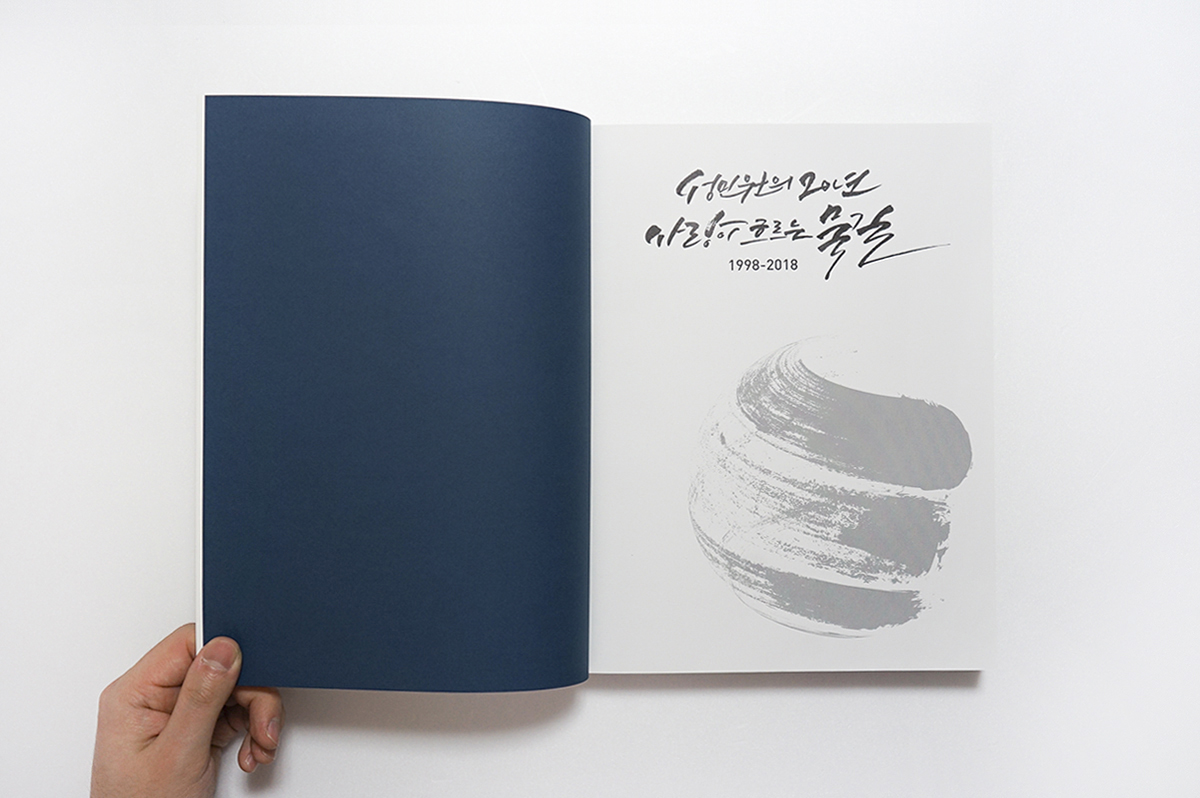 성민원의 20년
사랑이 흐르는 물결
1998-2018